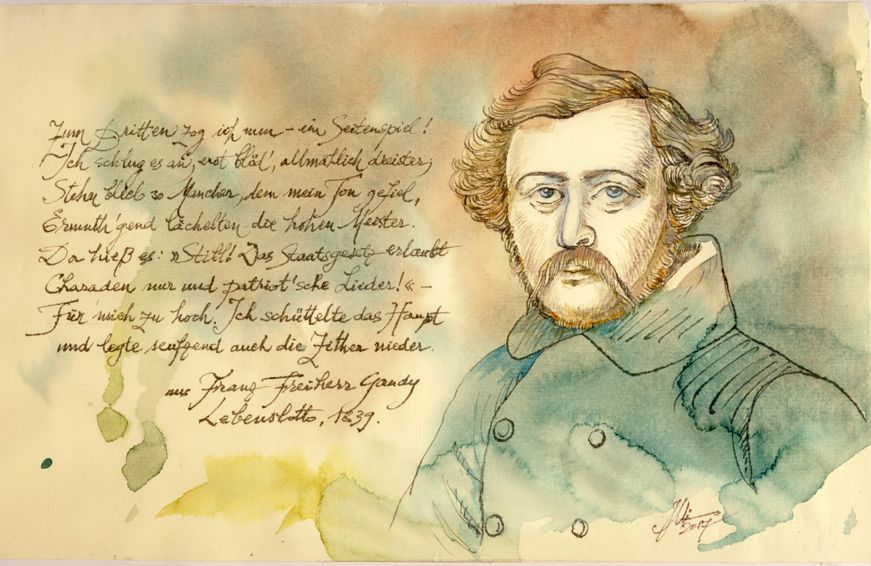 Zum Dritten zog ich nun – ein Seitenspiel!
Ich schlug es an, erst blöd', allmählich dreister;
Stehn blieb so Mancher, dem mein Ton gefiel,
Ermuth'gend lächelten die hohen Meister.
Da hieß es: »Still! Das Staatsgesetz erlaubt
Charaden nur und patriot'sche Lieder!« –
Für mich zu hoch. Ich schüttelte das Haupt
und legte seufzend auch die Zither nieder.
aus Franz Freiherr Gaudy
Lebenslotto, 1839.
2017